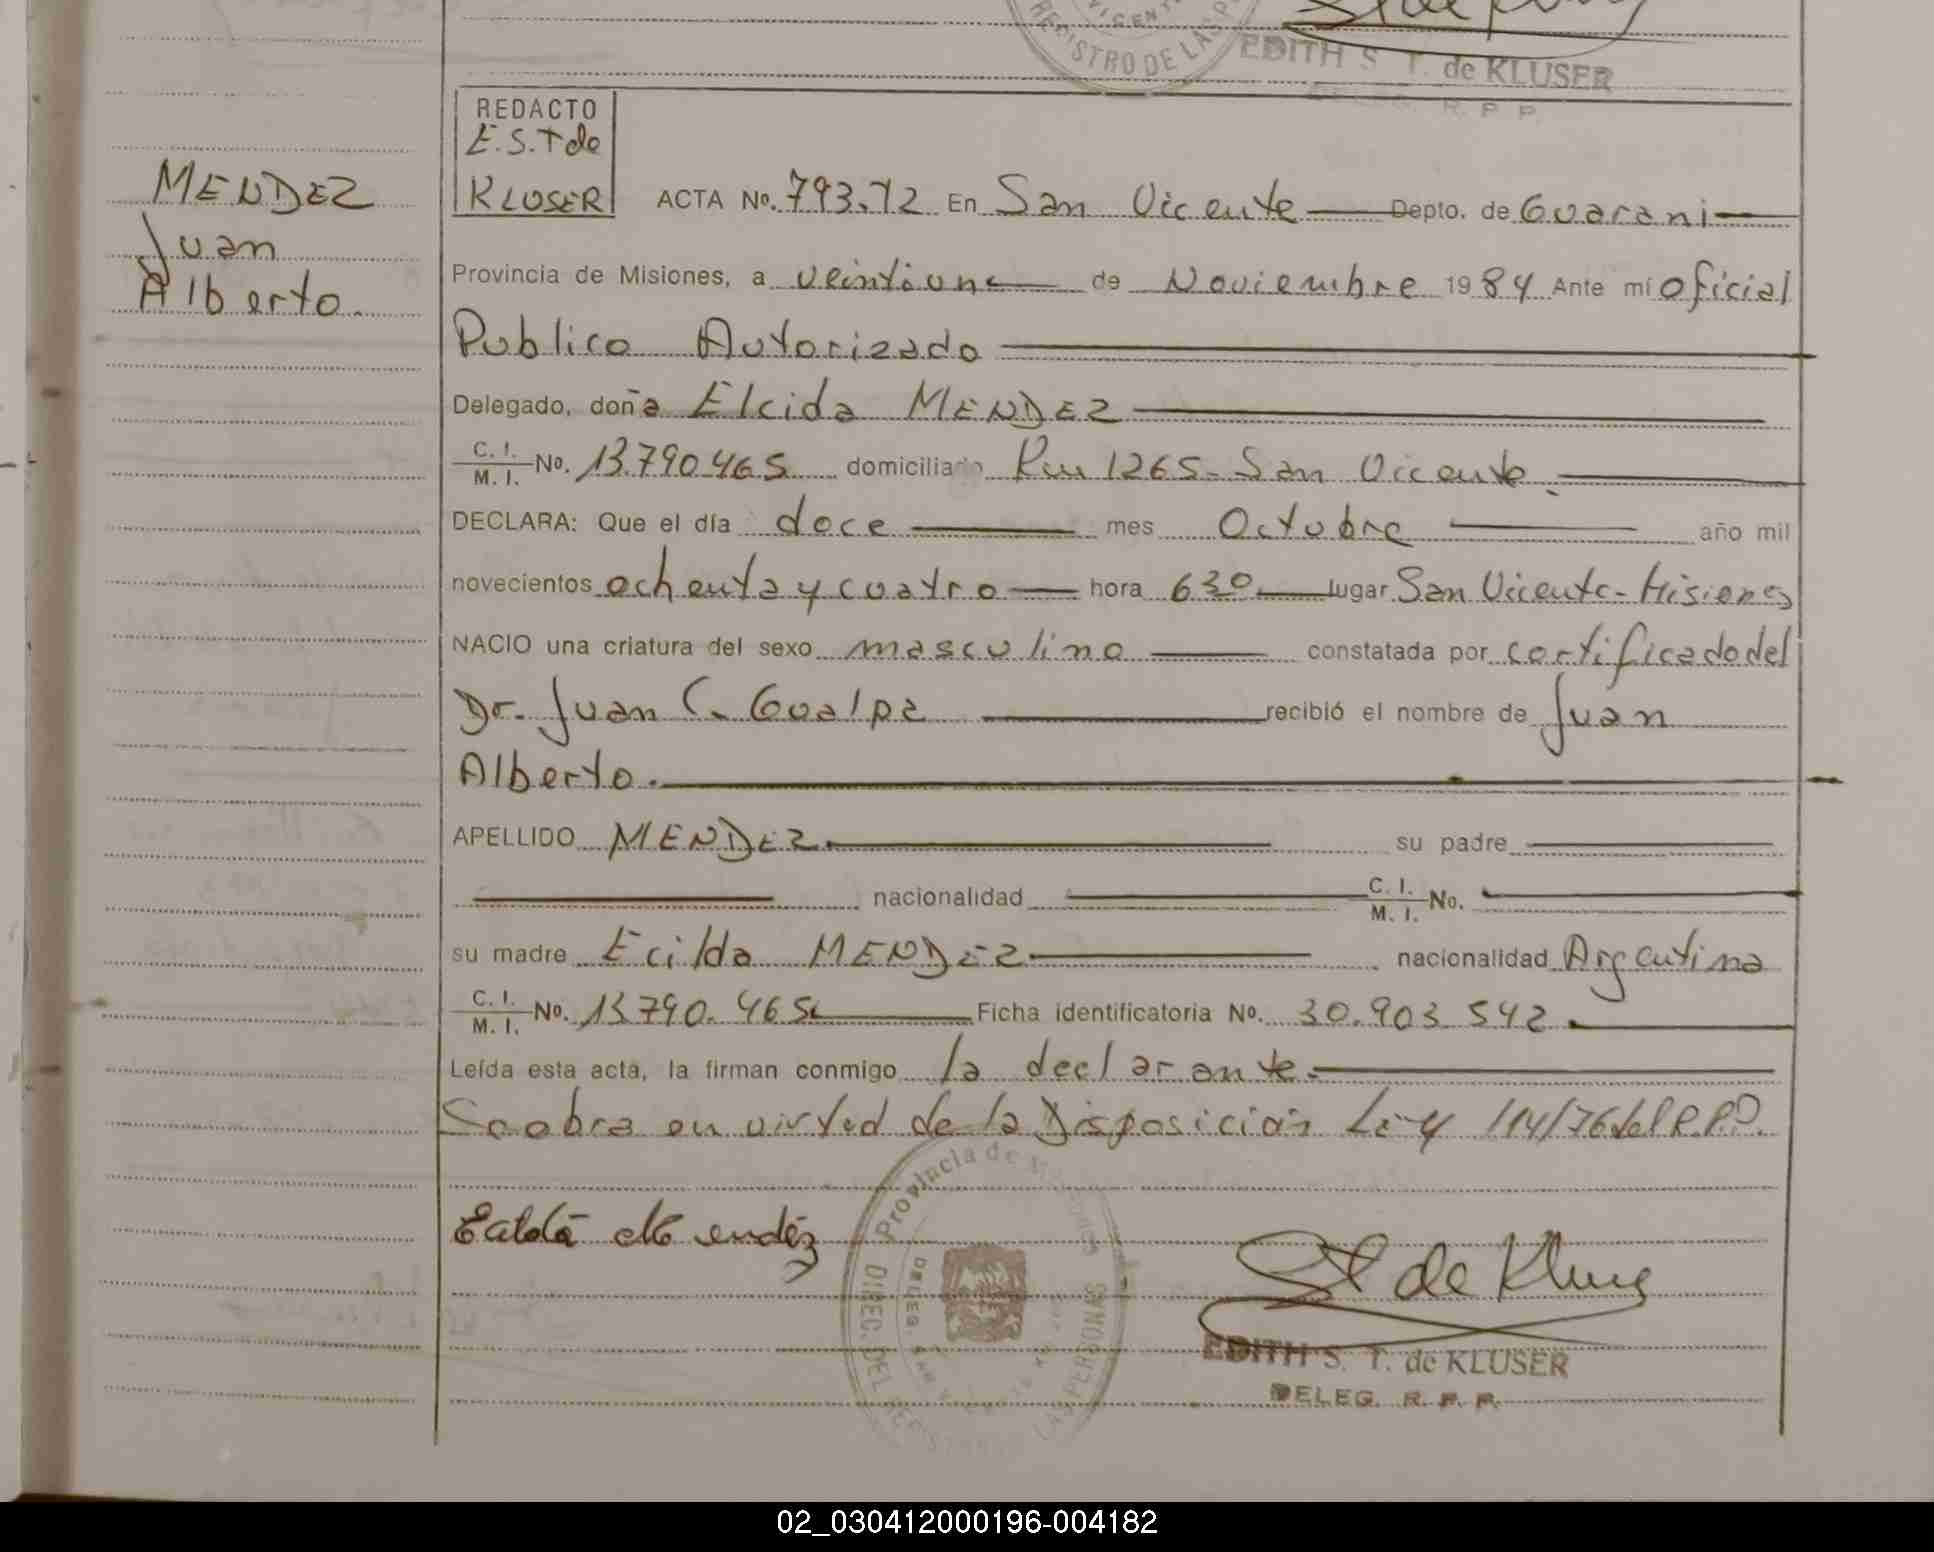 VICENT
REGISTRO DE LAS P
EDITH S. T. de KLUSER
DELEG. R. P. P.
REDACTO
E.S.T de
KLUSER
MENDEZ
Juan
Alberto.
ACTA No. 793.72 En San Vicente Depto. de Guarani
Provincia de Misiones, a veintiune de Noviembre 1984 Ante mí oficial
Publico Autorizado
Delegado, doña Elcida MENDEZ
C. I. / M. I. No. 13.790.465 domiciliado Km 1265- San Vicente.
DECLARA: Que el día doce mes Octubre año mil
novecientos ochenta y cuatro hora 630 lugar San Vicente-Misiones
NACIO una criatura del sexo masculino constatada por certificado del
Dr. Juan C. Gualpa recibió el nombre de Juan
Alberto.
APELLIDO MENDEZ. su padre
nacionalidad C. I. / M. I. No.
su madre Ecilda MENDEZ nacionalidad Argentina
C. I. / M. I. No. 13790.465 Ficha identificatoria No. 30.903 542.
Leída esta acta, la firman conmigo la declarante.
Se obra en virtud de la Disposición Ley 114/76 del R.P.P.
Mendez
Provincia de Misiones
DIREC. DEL REGISTRO DE LAS PERSONAS
DELEG. SAN VICENTE
St de Kluse
EDITH S. T. de KLUSER
DELEG. R. P. P.
02_030412000196-004182